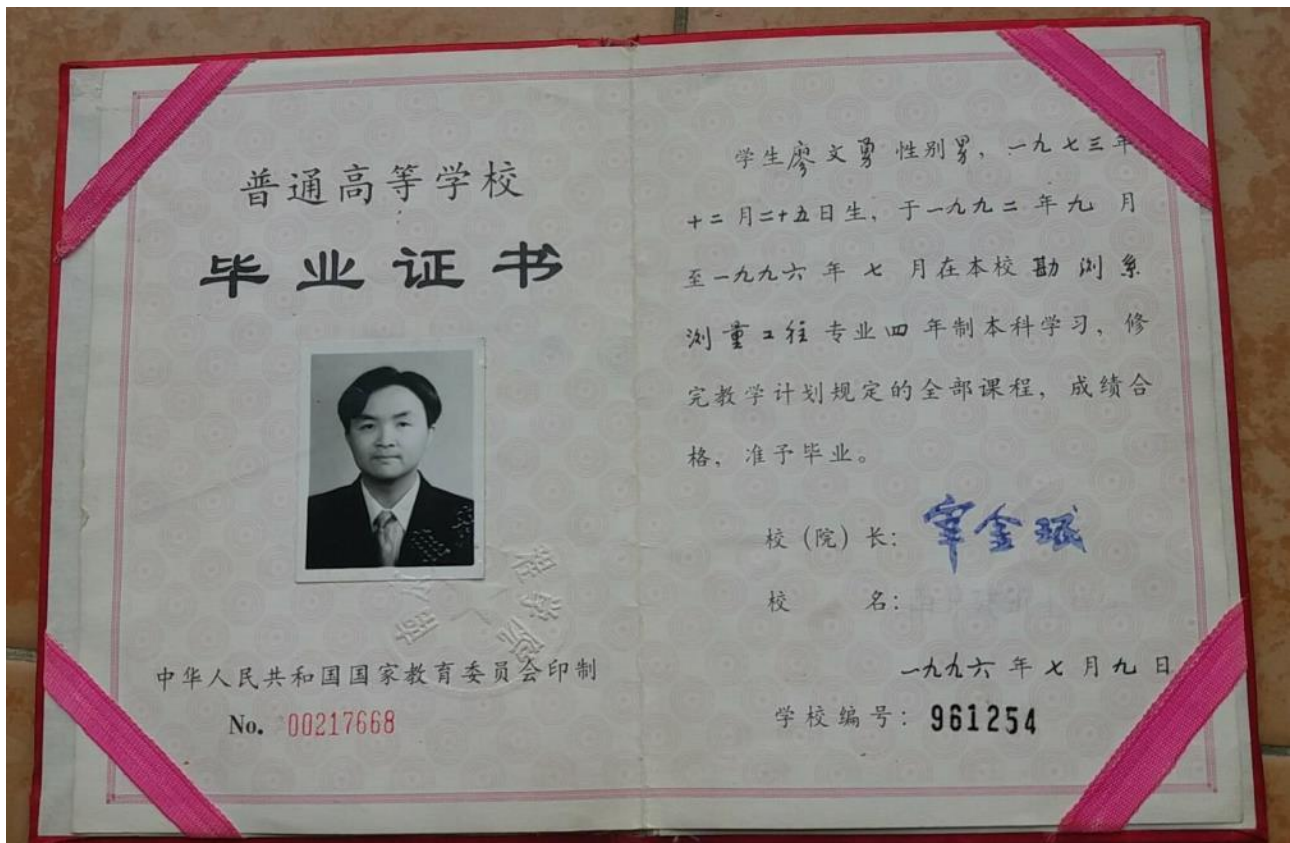 普通高等学校
毕业证书
中华人民共和国国家教育委员会印制
No. 00217668
学生廖文勇 性别男，一九七三年
十二月二十五日生，于一九九二年九月
至一九九六年七月在本校勘测系
测量工程专业四年制本科学习，修
完教学计划规定的全部课程，成绩合
格，准予毕业。
校（院）长：
校 名：
一九九六年七月九日
学校编号：961254